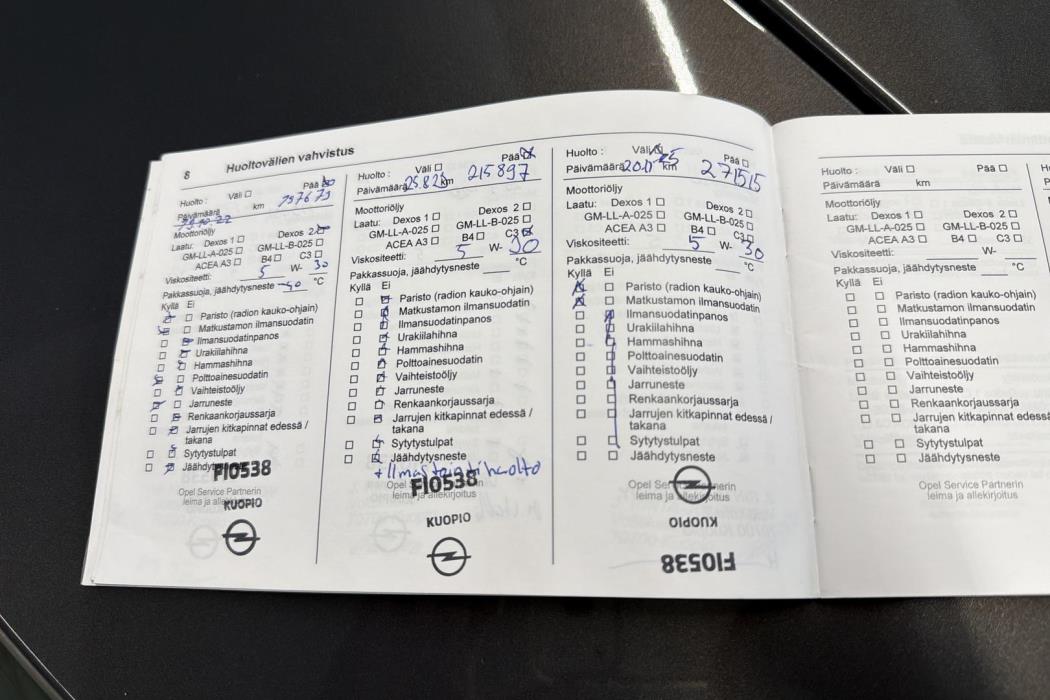 8 Huoltovälien vahvistus
Huolto : Väli Pää
Päivämäärä km 197673
Moottoriöljy
Laatu: Dexos 1 Dexos 2
GM-LL-A-025 GM-LL-B-025
ACEA A3 B4 C3
Viskositeetti: 5 W- 30
Pakkassuoja, jäähdytysneste -40 °C
Kyllä Ei
Paristo (radion kauko-ohjain)
Matkustamon ilmansuodatin
Ilmansuodatinpanos
Urakiilahihna
Hammashihna
Polttoainesuodatin
Vaihteistoöljy
Jarruneste
Renkaankorjaussarja
Jarrujen kitkapinnat edessä /
takana
Sytytystulpat
Jäähdytysneste
FI0538
Opel Service Partnerin
leima ja allekirjoitus
KUOPIO
Huolto : Väli Pää
Päivämäärä 25.8.23 km 215897
Moottoriöljy
Laatu: Dexos 1 Dexos 2
GM-LL-A-025 GM-LL-B-025
ACEA A3 B4 C3
Viskositeetti: 5 W- 30
Pakkassuoja, jäähdytysneste °C
Kyllä Ei
Paristo (radion kauko-ohjain)
Matkustamon ilmansuodatin
Ilmansuodatinpanos
Urakiilahihna
Hammashihna
Polttoainesuodatin
Vaihteistoöljy
Jarruneste
Renkaankorjaussarja
Jarrujen kitkapinnat edessä /
takana
Sytytystulpat
Jäähdytysneste
+ Ilmastointihuolto
Opel Service Partnerin
FI0538
leima ja allekirjoitus
KUOPIO
Huolto : Väli Pää
Päivämäärä 20.11.25 km 271515
Moottoriöljy
Laatu: Dexos 1 Dexos 2
GM-LL-A-025 GM-LL-B-025
ACEA A3 B4 C3
Viskositeetti: 5 W- 30
Pakkassuoja, jäähdytysneste °C
Kyllä Ei
Paristo (radion kauko-ohjain)
Matkustamon ilmansuodatin
Ilmansuodatinpanos
Urakiilahihna
Hammashihna
Polttoainesuodatin
Vaihteistoöljy
Jarruneste
Renkaankorjaussarja
Jarrujen kitkapinnat edessä /
takana
Sytytystulpat
Jäähdytysneste
Opel Service Partnerin
leima ja allekirjoitus
KUOPIO
FI0538
Huolto : Väli Pää
Päivämäärä km
Moottoriöljy
Laatu: Dexos 1 Dexos 2
GM-LL-A-025 GM-LL-B-025
ACEA A3 B4 C3
Viskositeetti: W-
Pakkassuoja, jäähdytysneste °C
Kyllä Ei
Paristo (radion kauko-ohjain)
Matkustamon ilmansuodatin
Ilmansuodatinpanos
Urakiilahihna
Hammashihna
Polttoainesuodatin
Vaihteistoöljy
Jarruneste
Renkaankorjaussarja
Jarrujen kitkapinnat edessä
takana
Sytytystulpat
Jäähdytysneste
Opel Service Partnerin
leima ja allekirjoitus